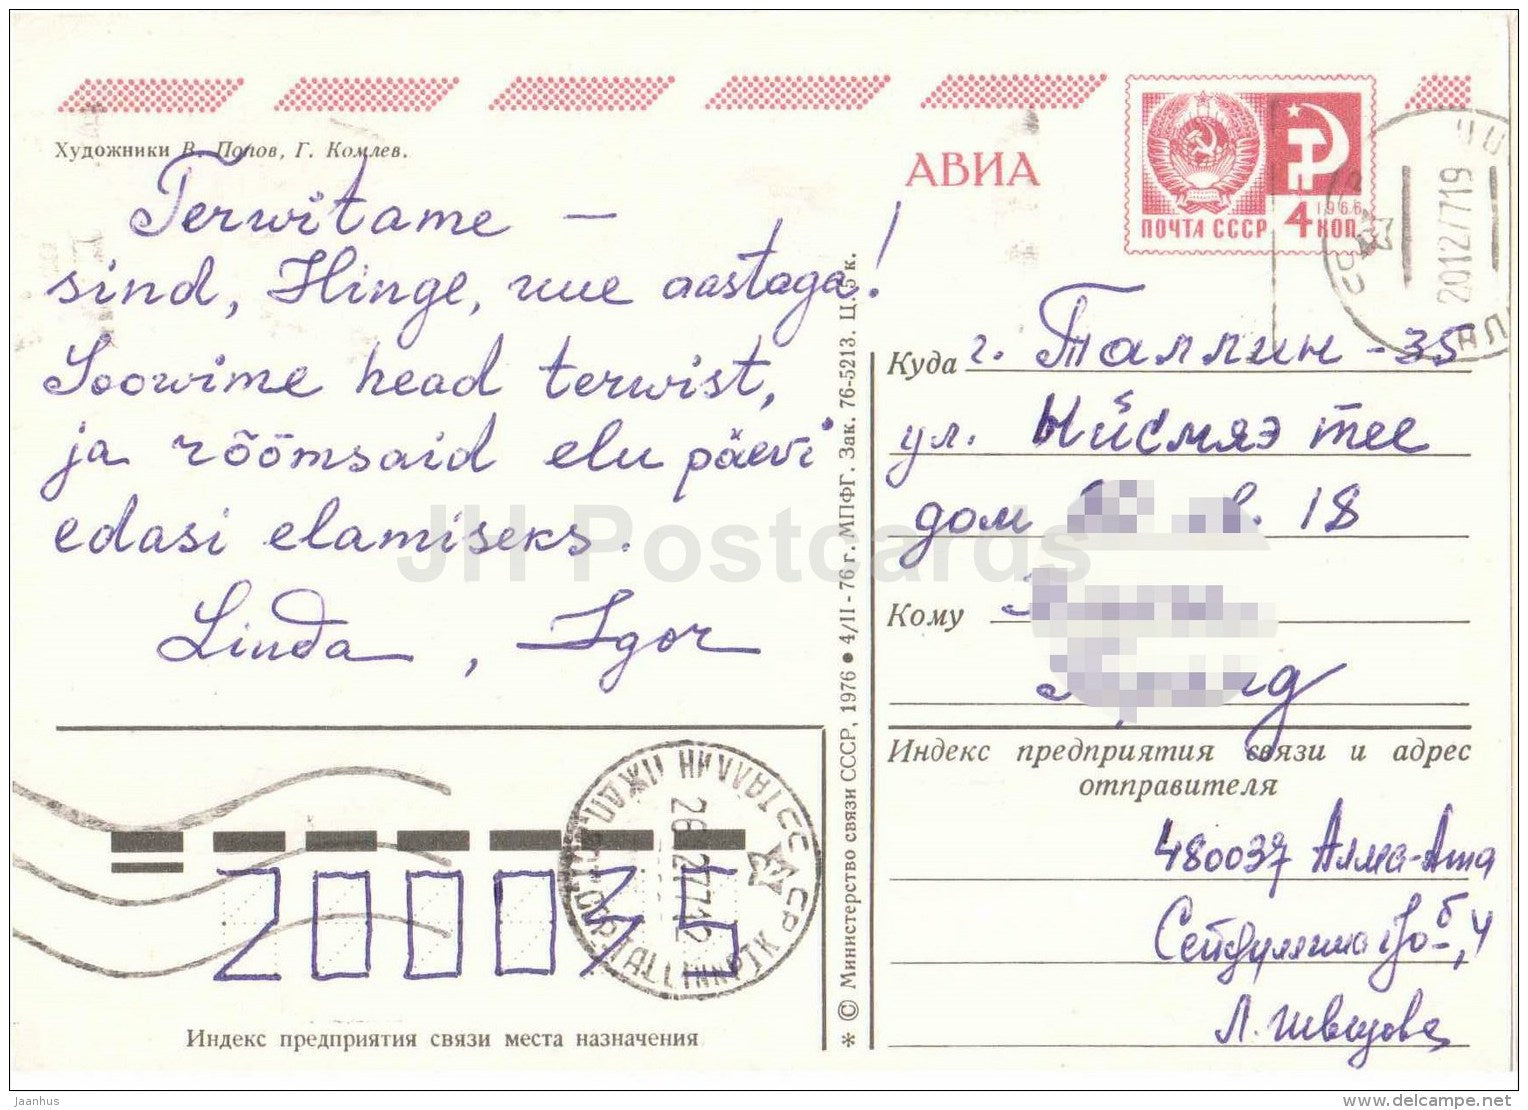 Художники В. Попов, Г. Комлев.
АВИА
ПОЧТА СССР 4 КОП
1966
20127719
Terwitame —
sind, Hinge, uue aastaga!
Soowime head terwist,
ja rõõmsaid elu päevi
edasi elamiseks.
Linda, Igor
* © Министерство связи СССР, 1976 • 4/II - 76 г. МПФГ. Зак. 76-5213. Ц. 5 к.
Куда г. Таллин - 35
ул. Ыйсмяэ тее
дом 18
Кому
Индекс предприятия связи и адрес
отправителя
480037 Алма-Ата
Л. Швецова
200035
ТАЛЛИН
TALLINN
Индекс предприятия связи места назначения
JH Postcards
Jaanhus
delcampe.net